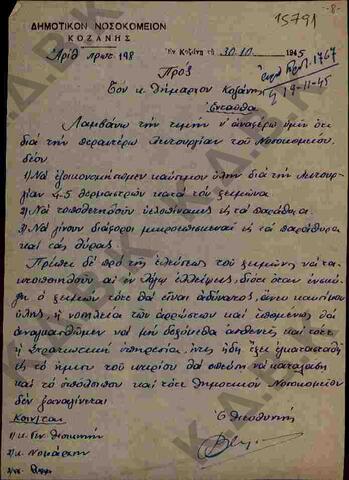 ΔΗΜΟΤΙΚΟΝ ΝΟΣΟΚΟΜΕΙΟΝ
ΚΟΖΑΝΗΣ
15791
-8-
Ἀριθ. πρωτ. 198
Ἐν Κοζάνῃ τῇ 30.10 1945
1767
τῇ 19-11-45
Πρός
Τόν κ. Δήμαρχον Κοζάνης
Ἐνταῦθα
Λαμβάνω τήν τιμήν ν' ἀναφέρω ὑμῖν ὅτι
διά τήν περαιτέρω λειτουργίαν τοῦ Νοσοκομείου
δέον
1) Νά ἐξοικονομήσωμεν καύσιμον ὕλην διά τήν λειτουρ-
γίαν 4-5 θερμαστρῶν κατά τόν χειμῶνα
2) Νά τοποθετηθοῦν ὑελοπίνακες εἰς τά παράθυρα.
3) Νά γίνουν διάφοροι μικροεπισκευαί εἰς τά παράθυρα
καί τάς θύρας
Πρέπει δέ πρό τῆς ἐλεύσεως τοῦ χειμῶνος νά τα-
κτοποιηθοῦν αἱ ἐν λόγῳ ἐλλείψεις, διότι ὅταν ἐνσκή-
ψῃ ὁ χειμών τότε θά εἶναι ἀδύνατος, ἄνευ καυσίμου
ὕλης, ἡ νοσηλεία τῶν ἀρρώστων καί ἑπομένως θά
ἀναγκασθῶμεν νά μή δεχόμεθα ἀσθενεῖς καί τότε
ἡ Στρατιωτική ὑπηρεσία, ἥτις ἤδη ἔχει ἐγκατασταθῆ
εἰς τό ἥμισυ τοῦ κτιρίου θά σπεύσῃ νά καταλάβῃ
καί τό ὑπόλοιπον καί τότε Δημοτικόν Νοσοκομεῖον
δέν ξαναγίνεται
Κοιν/ται
Ὁ Διευθυντής
1) κ. Γεν. Διοικητήν
2) κ. Νομάρχην